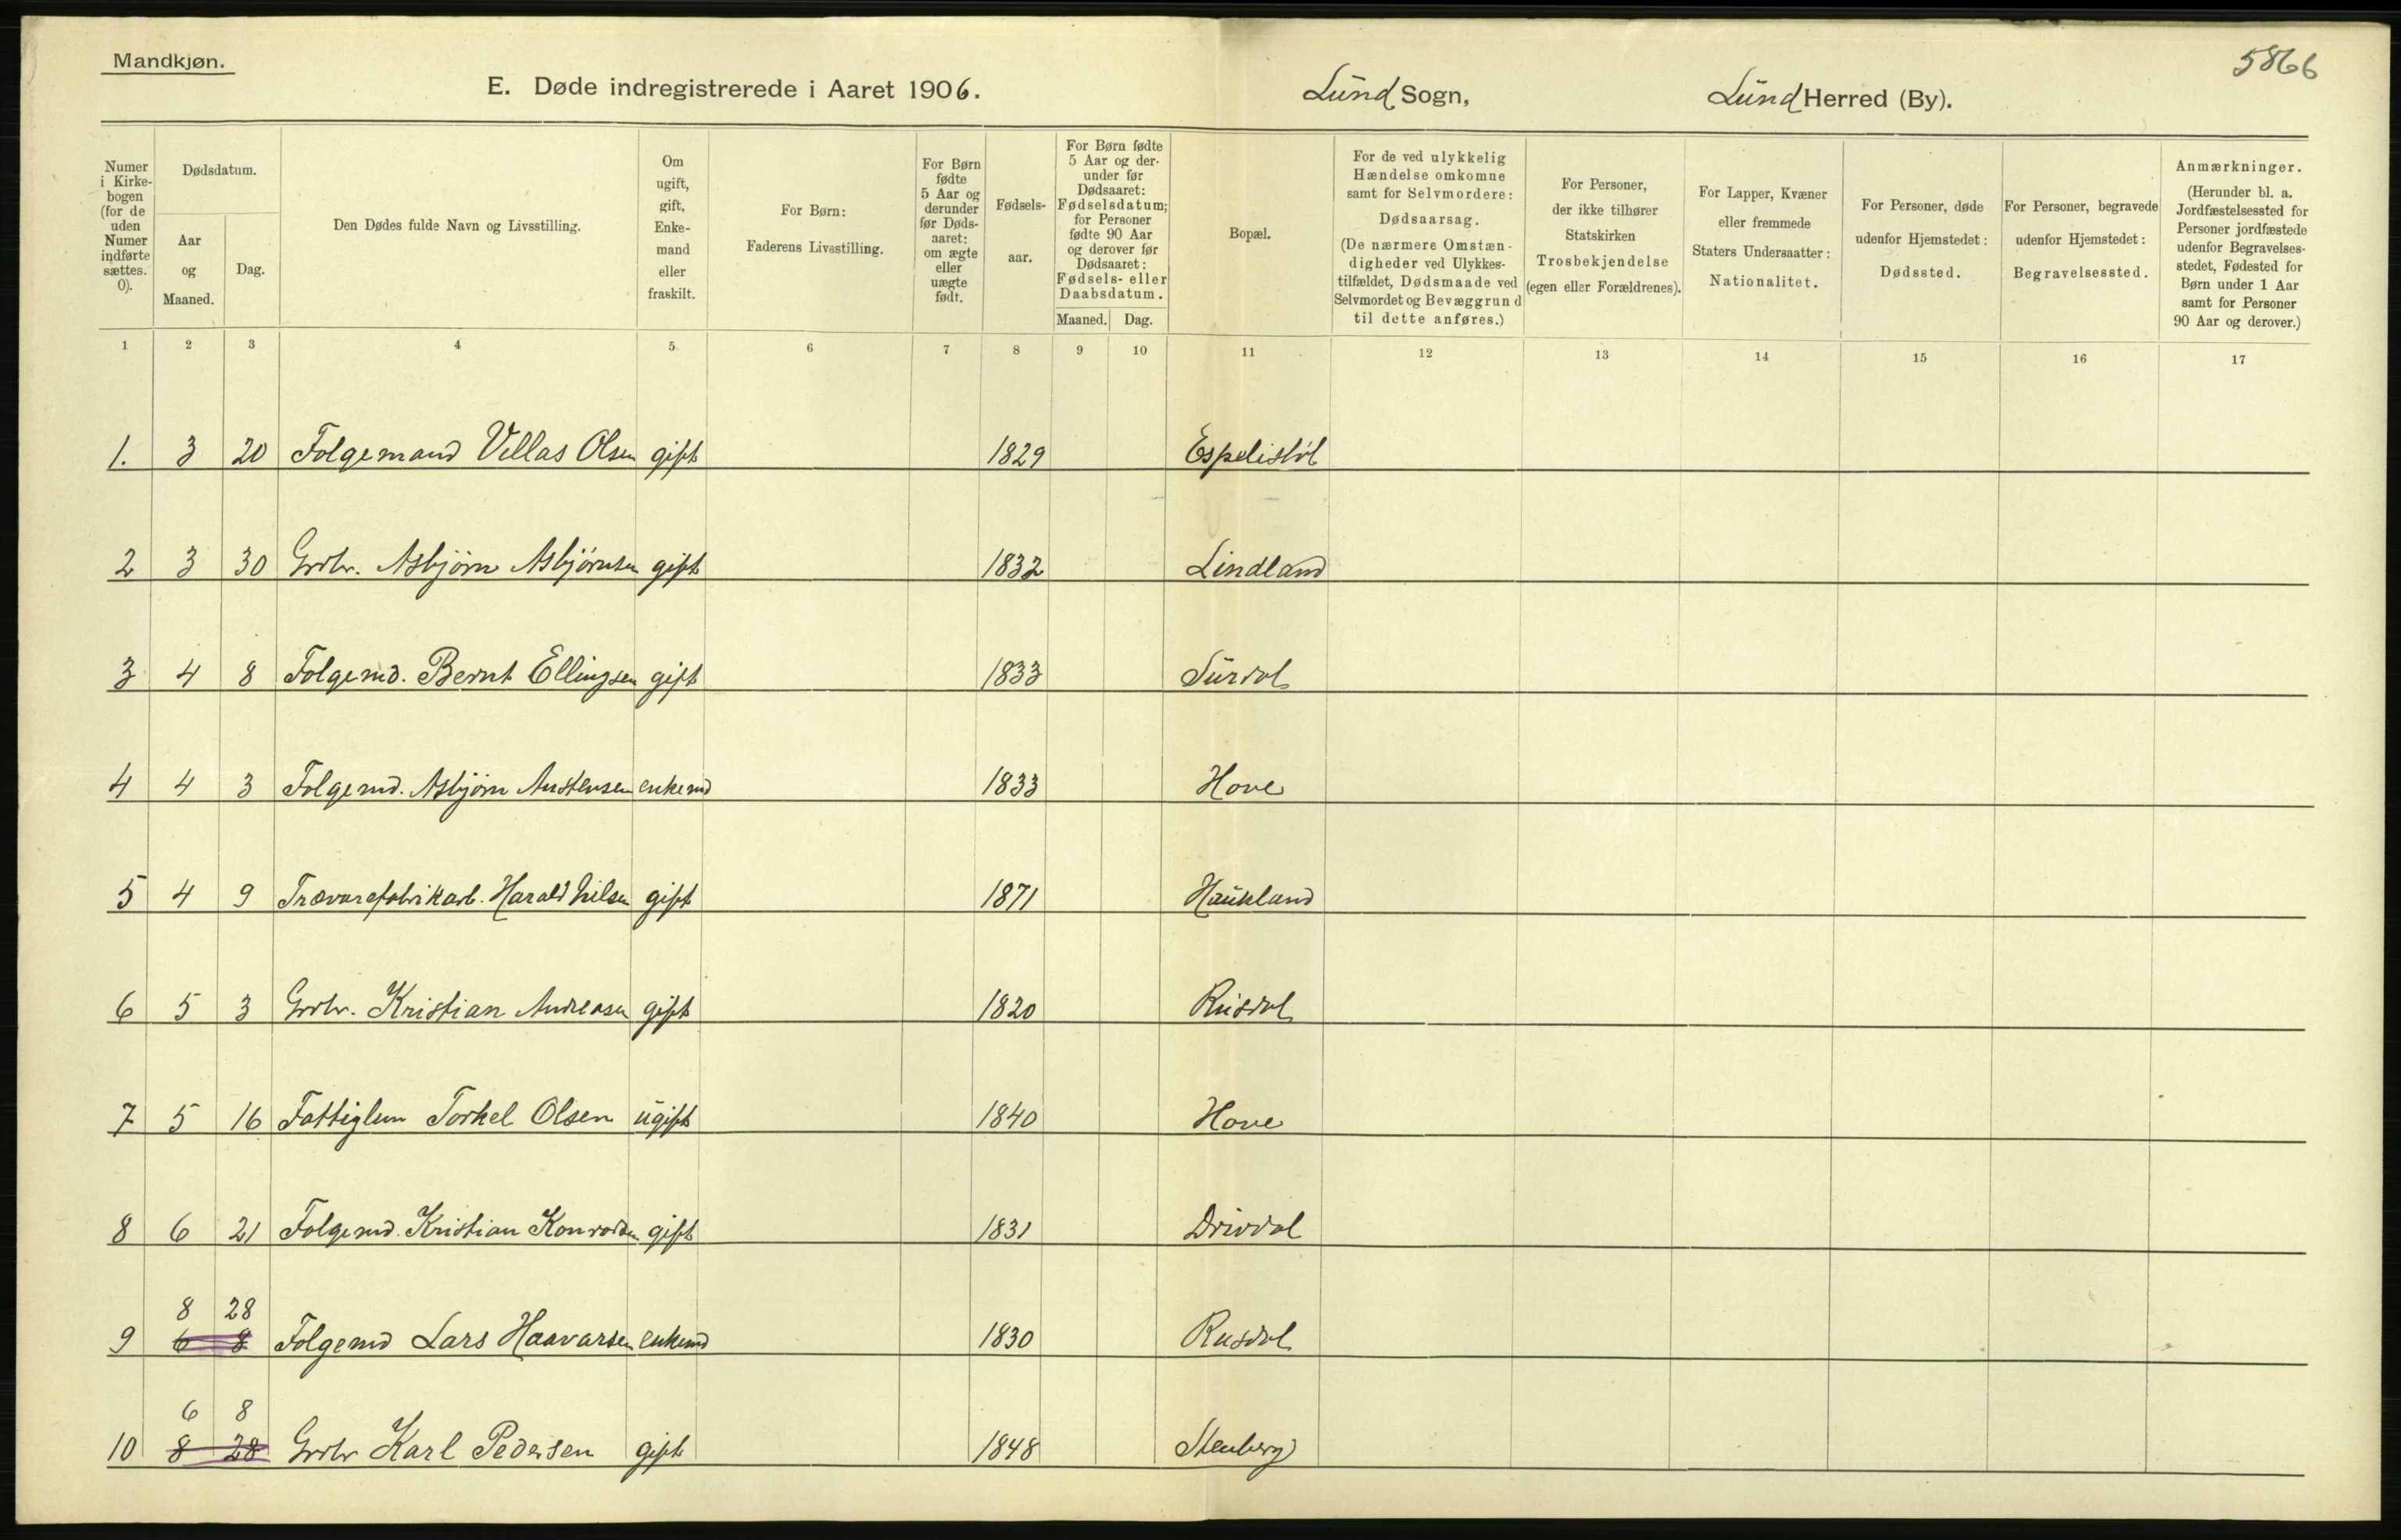 Mandkjøn.
5866
E. Døde indregistrerede i Aaret 1906.
Lund Sogn, Lund Herred (By).
Numer i Kirkebogen (for de uden Numer indførte sættes. 0).
Dødsdatum.
Aar og Maaned.
Dag.
Den Dødes fulde Navn og Livsstilling.
Om ugift, gift, Enkemand eller fraskilt.
For Børn: Faderens Livsstilling.
For Børn fødte 5 Aar og derunder før Dødsaaret: om ægte eller uægte født.
Fødselsaar.
For Børn fødte 5 Aar og derunder før Dødsaaret: Fødselsdatum; for Personer fødte 90 Aar og derover før Dødsaaret: Fødsels- eller Daabsdatum.
Maaned. Dag.
Bopæl.
For de ved ulykkelig Hændelse omkomne samt for Selvmordere: Dødsaarsag. (De nærmere Omstændigheder ved Ulykkestilfældet, Dødsmaade ved Selvmordet og Bevæggrund til dette anføres.)
For Personer, der ikke tilhører Statskirken Trosbekjendelse (egen eller Forældrenes).
For Lapper, Kvæner eller fremmede Staters Undersaatter: Nationalitet.
For Personer, døde udenfor Hjemstedet: Dødssted.
For Personer, begravede udenfor Hjemstedet: Begravelsessted.
Anmærkninger. (Herunder bl. a. Jordfæstelsessted for Personer jordfæstede udenfor Begravelsesstedet, Fødested for Børn under 1 Aar samt for Personer 90 Aar og derover.)
1 2 3 4 5 6 7 8 9 10 11 12 13 14 15 16 17
1. 3 20 Folgemand Villas Olsen gift 1829 Espelistøl
2 3 30 Grdbr. Asbjørn Asbjørnsen gift 1832 Lindland
3 4 8 Folgemd. Bernt Ellingsen gift 1833 Surdal
4 4 3 Folgemd. Asbjørn Austensen enkemd 1833 Hove
5 4 9 Trævarefabrikarb. Harald Nilsen gift 1871 Haukland
6 5 3 Grdbr. Kristian Andreasen gift 1820 Rusdal
7 5 16 Fattiglem Torkel Olsen ugift 1840 Hove
8 6 21 Folgemd. Kristian Konradsen gift 1831 Drivdal
8 28
9 6 8 Folgemd Lars Haavarsen enkemd 1830 Rusdal
6 8
10 8 28 Grdbr Karl Pedersen gift 1848 Stenberg